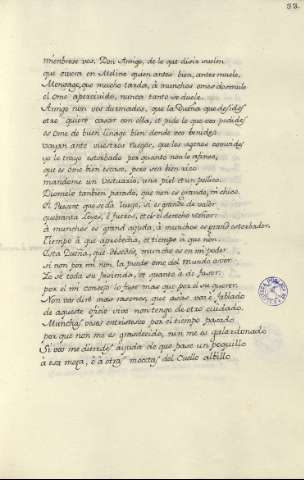 33.
miembrese vos, Don Amigo, de lo que diria suelen
que quien en Molino quien antes bien, antes muele.
Mensage, que mucho tarda, à muchos omes desmuele
el ome apercibido, nunca tanto se duele.
Amigo non vos durmades, que la Dueña que desides
otro quiere casar con ella, et pide lo que vos pedides
es ome de buen linage bien donde vos benides
vayan ante vuestros ruegos, que los agenos convides
yo lo trayo estorbado por quanto non lo afinco,
que es ome bien escaso, pero sea bien rico
mandome un vestuario, una piel et un pellico
Diomelo tambien parado, que non es grande, ni chico
El Present que se dà luego, si es grande de valor
quebranta Leyes, è fueros, et es del derecho señor:
à muchos es grand ayuda, à muchos es grand estorbador.
Tiempo à que aprobecha, et tiempo à que non
Esta Dueña, que desides, mucho es en mi poder
si non por mi non la puede ome del mundo aver
Yo sè toda su fasienda, et quanto à de faser
por el mi consejo lo fase mas que por el su querer.
Non vos diré mas rasones, que asas vos è fablado
de aqueste oficio vivo non tengo de otro cuidado.
Munchas veses entristesco por el tiempo pasado
por que non me es gradecido, nin me es galardonado
Si vos me dierdes ayuda de que pase un poquillo
à esa moza, è à otras mocetas del Cuello albillo